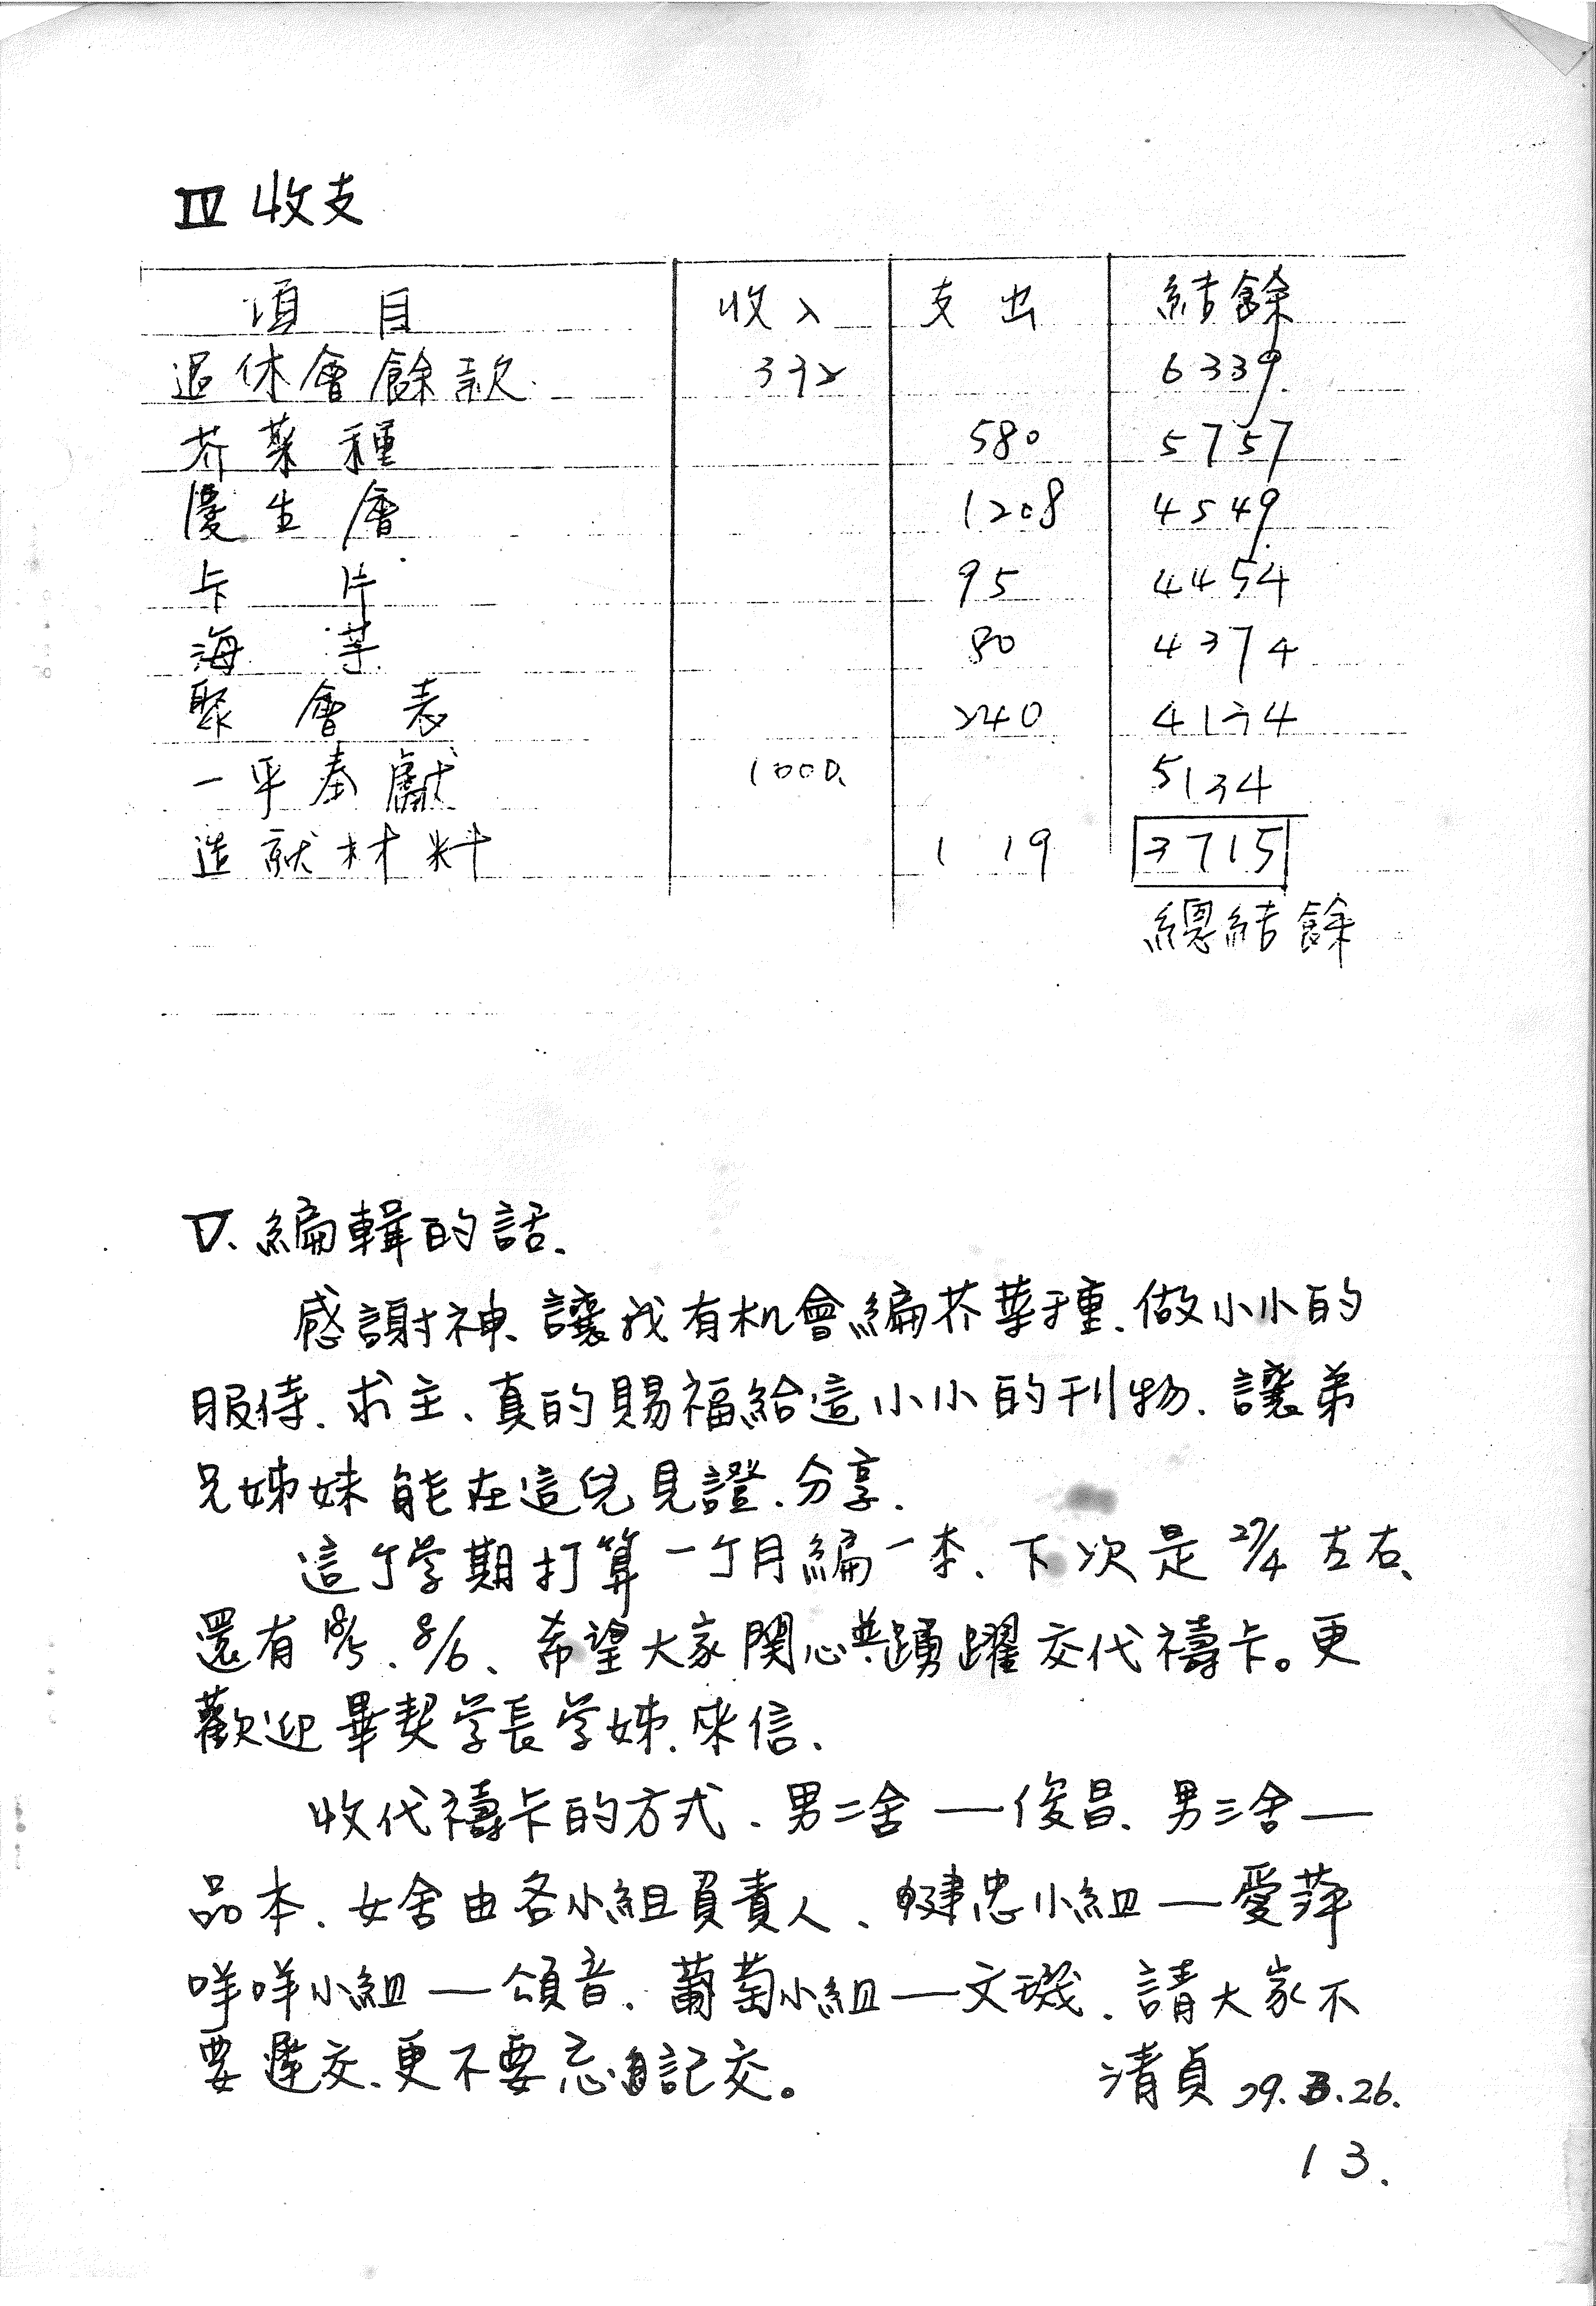 Ⅳ 收支
項目 收入 支出 結餘
退休會餘款 392 6339
芥菜種 580 5757
慶生會 1208 4549
卡片 95 4454
海芋 80 4374
聚會表 240 4134
一平奉獻 1000 5134
造就材料 1 19 3715
總結餘
Ⅴ、編輯的話、
感謝神、讓我有机會編芥菜種、做小小的
服侍、求主、真的賜福給這小小的刊物、讓弟
兄姊妹能在這兒見證、分享、
這个学期打算一个月編一本、下次是 27/4 左右、
還有 18/5、8/6、希望大家関心並踴躍交代禱卡。更
歡迎畢契学長学姊、來信、
收代禱卡的方式、男二舍——俊昌、男三舍——
品本、女舍由各小組負責人、忠小組——愛萍
咩咩小組——頌音、葡萄小組——文璣、請大家不
要遲交、更不要忘記交。 清貞 79.3.26.
13.